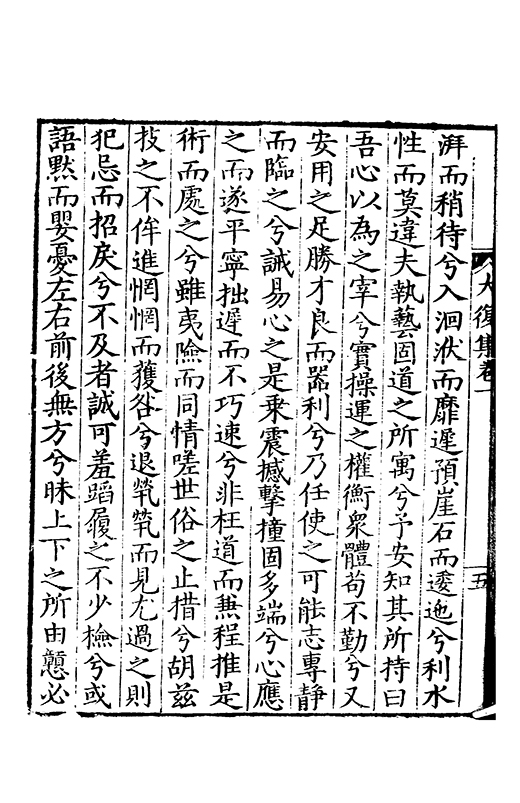 大復集卷一
五
湃而稍待兮入洄洑而靡遲預崖石而逶迤兮利水
性而莫違夫執藝固道之所寓兮予安知其所持曰
吾心以為之宰兮實操運之權衡衆體茍不勤兮又
安用之足勝才良而器利兮乃任使之可能志專靜
而臨之兮誠易心之是乗震撼擊撞固多端兮心應
之而遂平寧拙遲而不巧速兮非枉道而兼程推是
術而處之兮雖夷險而同情嗟世俗之止措兮胡兹
技之不侔進惘惘而獲咎兮退煢煢而見尤過之則
犯忌而招戾兮不及者誠可羞蹈履之不少檢兮或
語黙而嬰憂左右前後無方兮昧上下之所由戇必